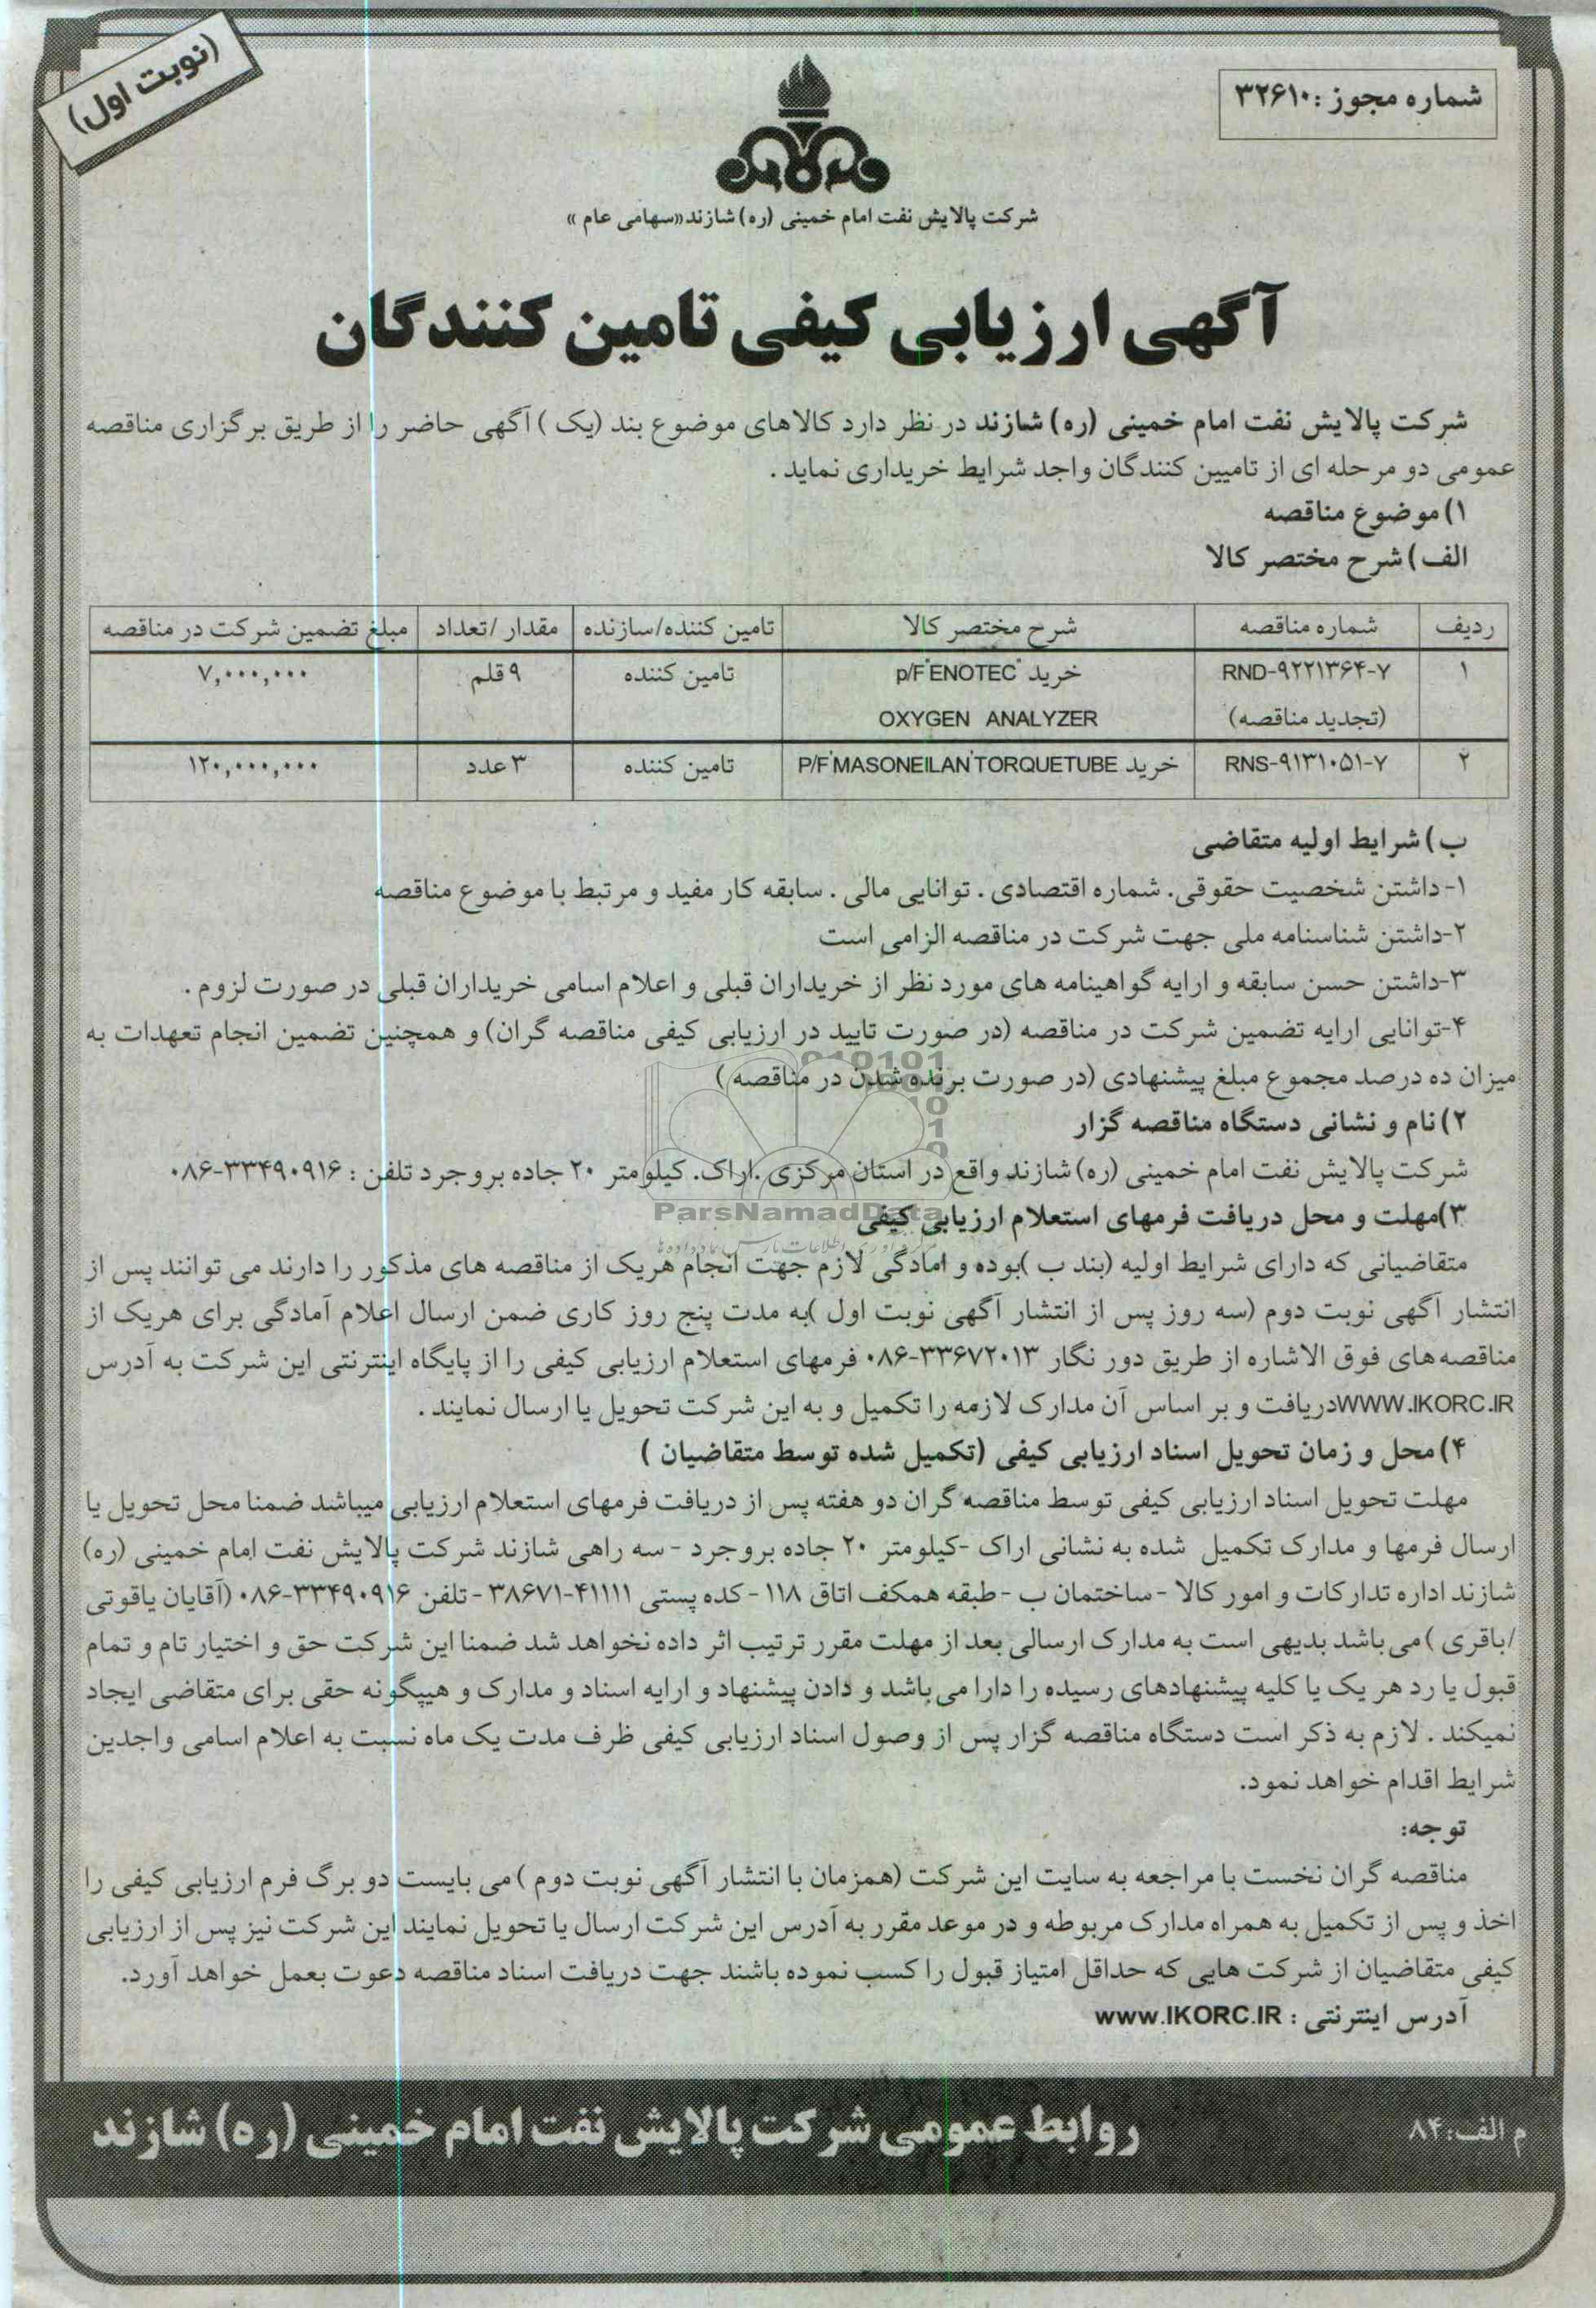 (نوبت اول)
شماره مجوز : ۳۲۶۱۰
شرکت پالایش نفت امام خمینی (ره) شازند«سهامی عام »
آگهی ارزیابی کیفی تامین کنندگان
شرکت پالایش نفت امام خمینی (ره) شازند در نظر دارد کالاهای موضوع بند (یک ) آگهی حاضر را از طریق برگزاری مناقصه
عمومی دو مرحله ای از تامیین کنندگان واجد شرایط خریداری نماید .
۱) موضوع مناقصه
الف) شرح مختصر کالا
ردیف شماره مناقصه شرح مختصر کالا تامین کننده/سازنده مقدار /تعداد مبلغ تضمین شرکت در مناقصه
۱ RND-۹۲۲۱۳۶۴-۷ خرید p/F"ENOTEC" تامین کننده ۹ قلم ۷,۰۰۰,۰۰۰
(تجدید مناقصه) OXYGEN ANALYZER
۲ RNS-۹۱۳۱۰۵۱-۷ خرید P/F"MASONEILAN"TORQUETUBE تامین کننده ۳ عدد ۱۲۰,۰۰۰,۰۰۰
ب) شرایط اولیه متقاضی
۱- داشتن شخصیت حقوقی. شماره اقتصادی . توانایی مالی . سابقه کار مفید و مرتبط با موضوع مناقصه
۲-داشتن شناسنامه ملی جهت شرکت در مناقصه الزامی است
۳-داشتن حسن سابقه و ارایه گواهینامه های مورد نظر از خریداران قبلی و اعلام اسامی خریداران قبلی در صورت لزوم .
۴-توانایی ارایه تضمین شرکت در مناقصه (در صورت تایید در ارزیابی کیفی مناقصه گران) و همچنین تضمین انجام تعهدات به
میزان ده درصد مجموع مبلغ پیشنهادی (در صورت برنده شدن در مناقصه)
۲) نام و نشانی دستگاه مناقصه گزار
شرکت پالایش نفت امام خمینی (ره) شازند واقع در استان مرکزی .اراک. کیلومتر ۲۰ جاده بروجرد تلفن : ۳۳۴۹۰۹۱۶-۰۸۶
ParsNamadData
۳)مهلت و محل دریافت فرمهای استعلام ارزیابی کیفی
متقاضیانی که دارای شرایط اولیه (بند ب )بوده و امادگی لازم جهت انجام هریک از مناقصه های مذکور را دارند می توانند پس از
انتشار آگهی نوبت دوم (سه روز پس از انتشار آگهی نوبت اول )به مدت پنج روز کاری ضمن ارسال اعلام آمادگی برای هریک از
مناقصه های فوق الاشاره از طریق دور نگار ۳۳۶۷۲۰۱۳-۰۸۶ فرمهای استعلام ارزیابی کیفی را از پایگاه اینترنتی این شرکت به آدرس
WWW.IKORC.IRدریافت و بر اساس آن مدارک لازمه را تکمیل و به این شرکت تحویل یا ارسال نمایند .
۴) محل و زمان تحویل اسناد ارزیابی کیفی (تکمیل شده توسط متقاضیان )
مهلت تحویل اسناد ارزیابی کیفی توسط مناقصه گران دو هفته پس از دریافت فرمهای استعلام ارزیابی میباشد ضمنا محل تحویل یا
ارسال فرمها و مدارک تکمیل شده به نشانی اراک -کیلومتر ۲۰ جاده بروجرد - سه راهی شازند شرکت پالایش نفت امام خمینی (ره)
شازند اداره تدارکات و امور کالا - ساختمان ب - طبقه همکف اتاق ۱۱۸ - کده پستی ۴۱۱۱۱-۳۸۶۷۱ - تلفن ۳۳۴۹۰۹۱۶-۰۸۶ (آقایان یاقوتی
/باقری ) می باشد بدیهی است به مدارک ارسالی بعد از مهلت مقرر ترتیب اثر داده نخواهد شد ضمنا این شرکت حق و اختیار تام و تمام
قبول یا رد هر یک یا کلیه پیشنهادهای رسیده را دارا می باشد و دادن پیشنهاد و ارایه اسناد و مدارک و هیپگونه حقی برای متقاضی ایجاد
نمیکند . لازم به ذکر است دستگاه مناقصه گزار پس از وصول اسناد ارزیابی کیفی ظرف مدت یک ماه نسبت به اعلام اسامی واجدین
شرایط اقدام خواهد نمود.
توجه:
مناقصه گران نخست با مراجعه به سایت این شرکت (همزمان با انتشار آگهی نوبت دوم ) می بایست دو برگ فرم ارزیابی کیفی را
اخذ و پس از تکمیل به همراه مدارک مربوطه و در موعد مقرر به آدرس این شرکت ارسال یا تحویل نمایند این شرکت نیز پس از ارزیابی
کیفی متقاضیان از شرکت هایی که حداقل امتیاز قبول را کسب نموده باشند جهت دریافت اسناد مناقصه دعوت بعمل خواهد آورد.
آدرس اینترنتی : www.IKORC.IR
روابط عمومی شرکت پالایش نفت امام خمینی (ره) شازند
م الف: ۸۴